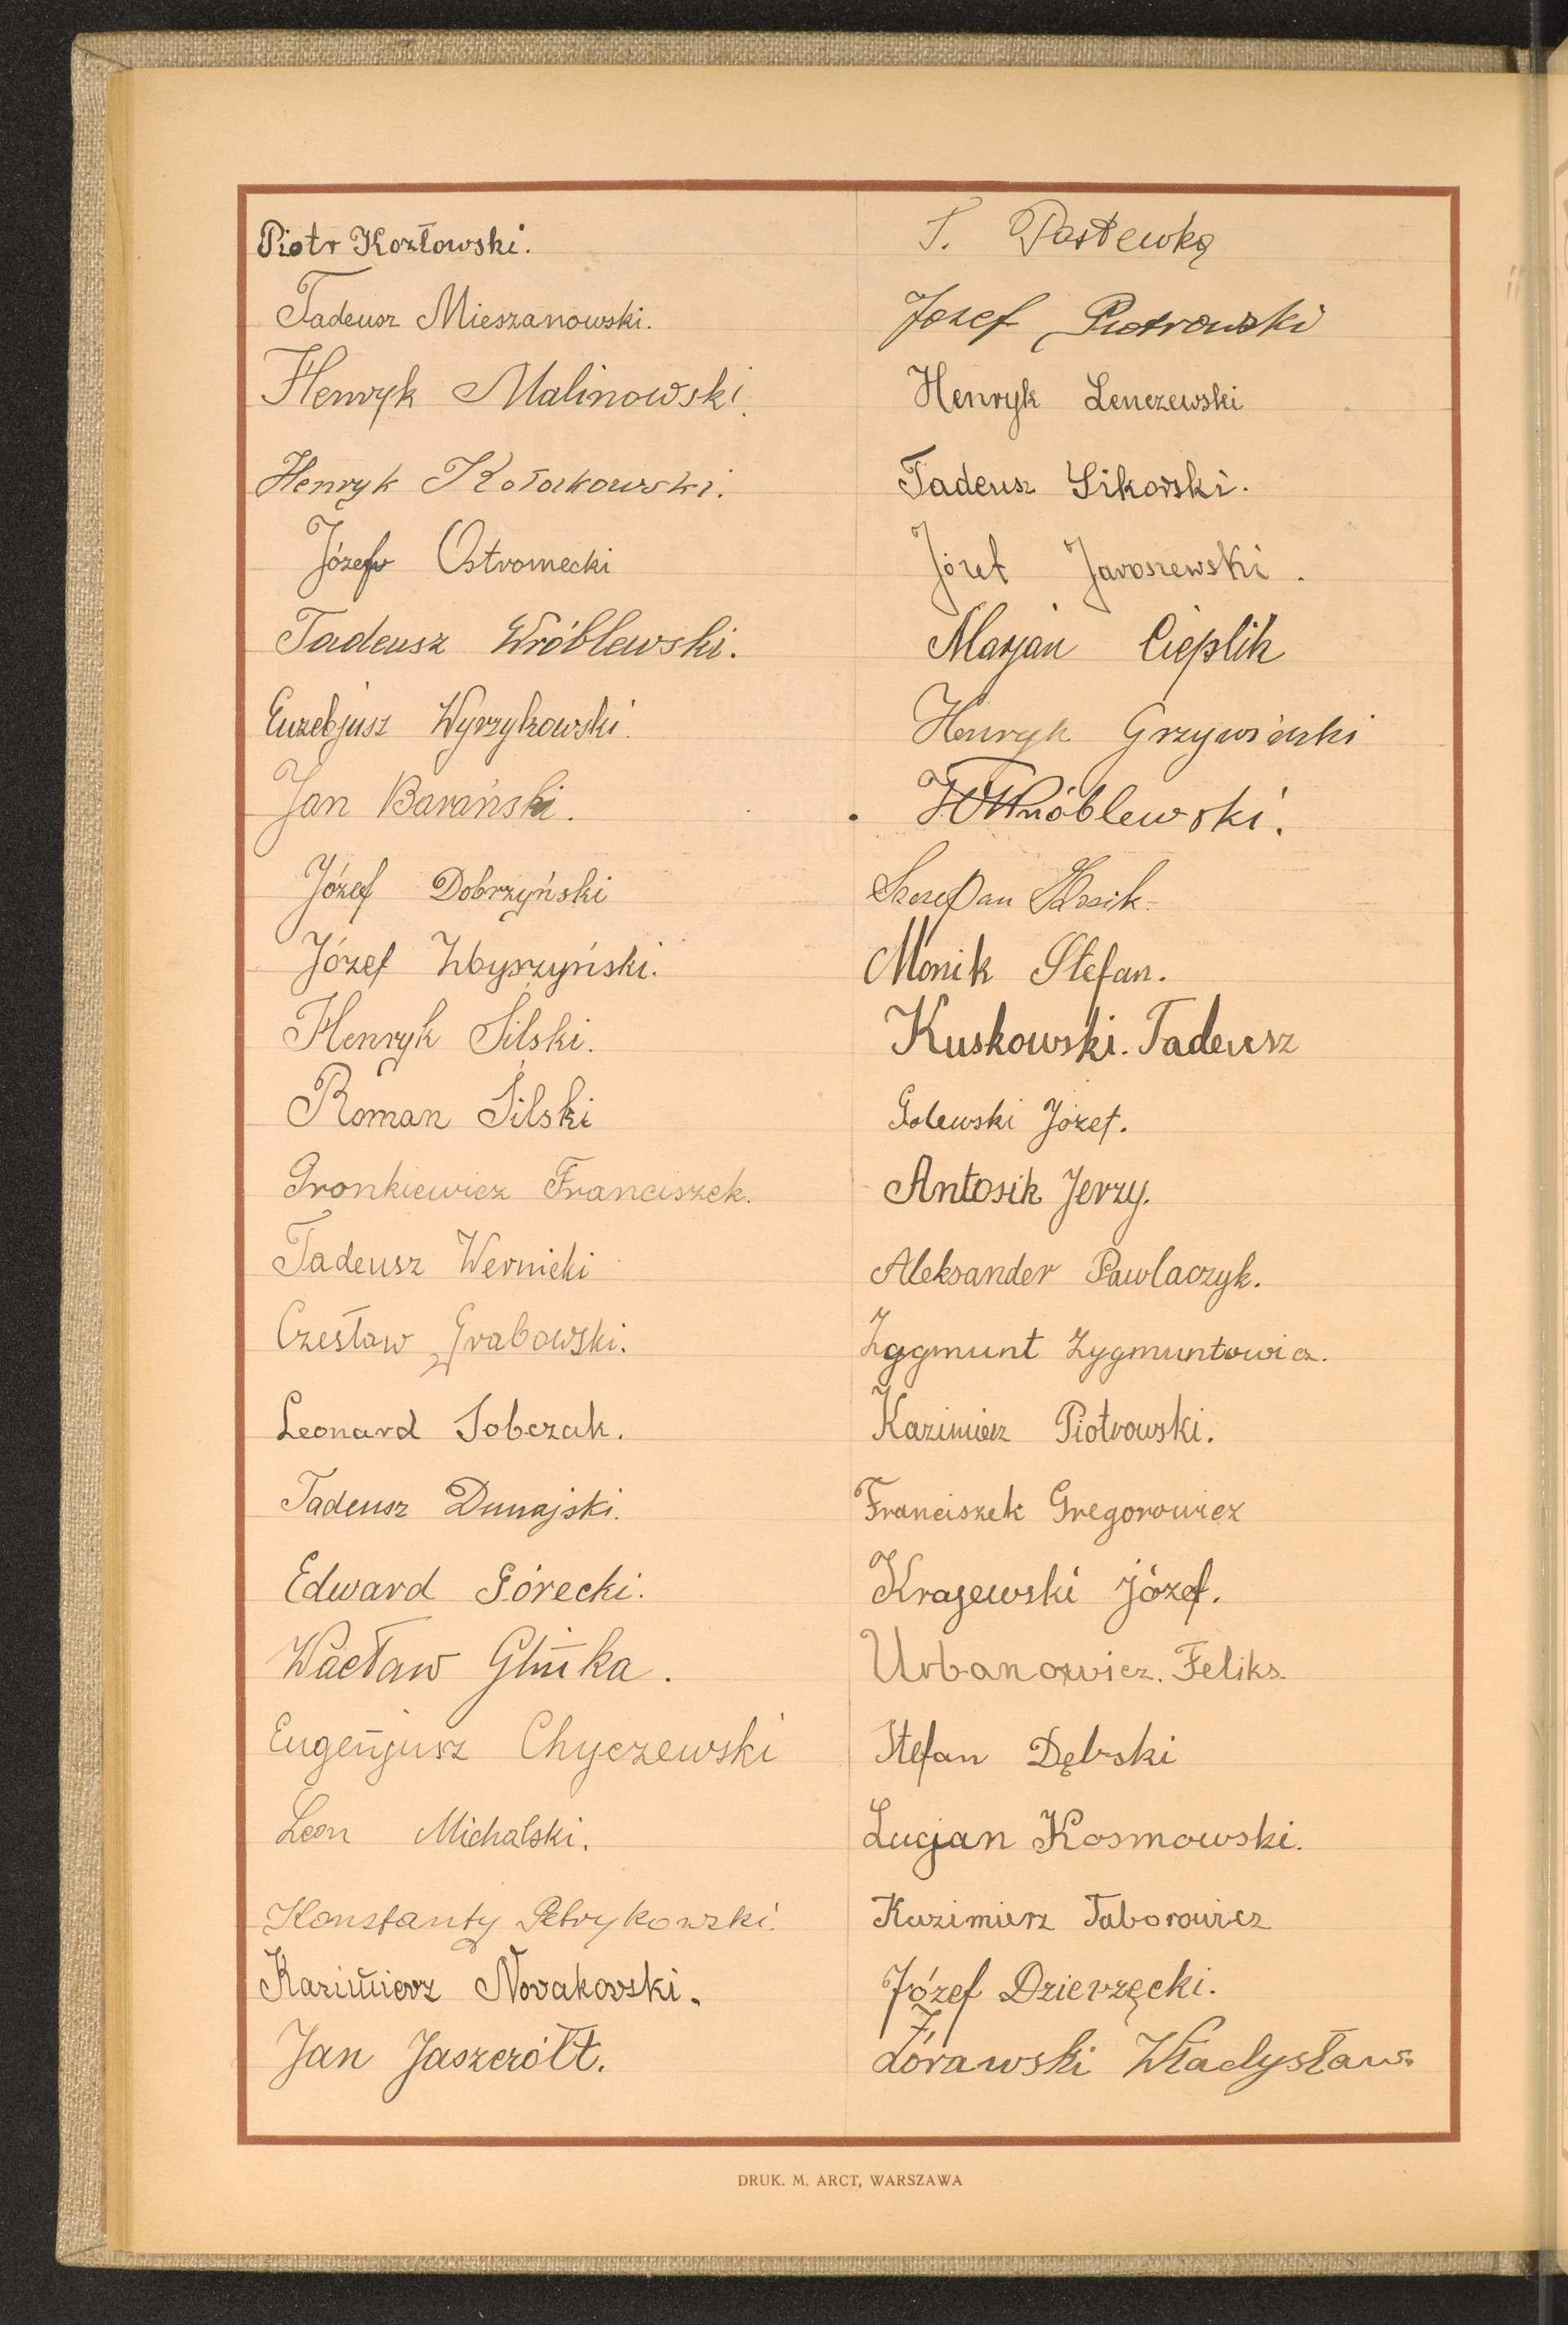 Piotr Kozłowski.
Tadeusz Mieszanowski.
Henryk Malinowski.
Henryk Kołakowski.
Józef Ostromecki
Tadeusz Wróblewski.
Euzebjusz Wyrzykowski.
Jan Barański.
Józef Dobrzyński
Józef Zbyszyński.
Henryk Silski.
Roman Silski
Gronkiewicz Franciszek.
Tadeusz Wernicki
Czesław Grabowski.
Leonard Sobczak.
Tadeusz Dunajski.
Edward Górecki.
Wacław Glinka.
Eugenjusz Chyczewski
Leon Michalski.
Konstanty Petrykowski.
Kazimierz Novakovski.
Jan Jaszczółt.
T. Pastewką
Jozef Piotrowski
Henryk Lenczewski
Tadeusz Sikorski.
Józef Jaroszewski.
Marjan Cieplik
Henryk Grzywiński
Wróblewski.
Szczepan
Monik Stefan.
Kuskowski. Tadeusz
Golewski Józef.
Antosik Jerzy.
Aleksander Pawlaczyk.
Zygmunt Zygmuntowicz.
Kazimierz Piotrowski.
Franciszek Gregorowicz
Krajewski józef.
Urbanowicz. Feliks.
Stefan Dębski
Lucjan Kosmowski.
Kazimierz Taborowicz
Józef Dzierzęcki.
Żórawski Władysław.
DRUK. M. ARCT, WARSZAWA